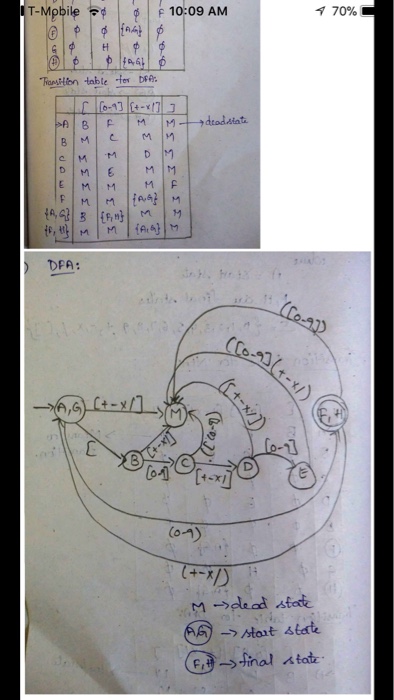 T-Mobile 10:09 AM 70%
φ φ φ F
F φ φ {A,G} φ
G φ H φ φ
H φ φ {A,G} φ
Transition table for DFA:
[ [0-9] [+-×/] ]
→A B F M M → dead state
B M C M M
C M M D M
D M E M M
E M M M F
F M M {A,G} M
{A,G} B {F,H} M M
{F,H} M M {A,G} M
DFA:
([0-9])
([0-9](+-×/)
([+-×/])
A,G [+-×/] M F,H
[ B [0-9] C [+-×/] D [0-9] E
(0-9)
(+-×/)
M → dead state
AG → start state
F,H → final state